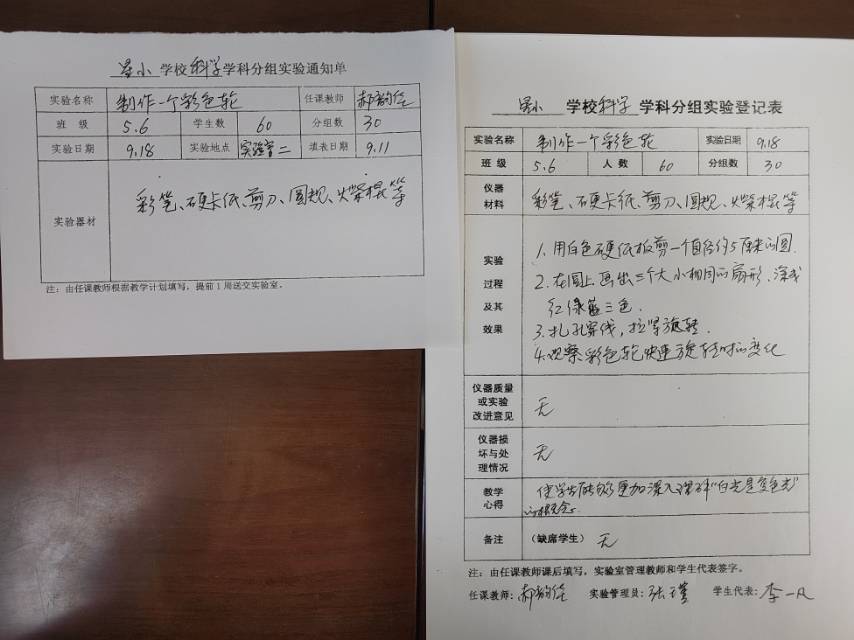 星小 学校科学学科分组实验通知单
实验名称 制作一个彩色轮 任课教师 郝韵佳
班 级 5.6 学生数 60 分组数 30
实验日期 9.18 实验地点 实验室二 填表日期 9.11
实验器材 彩笔、硬卡纸、剪刀、圆规、火柴棍等
注:由任课教师根据教学计划填写,提前1周送交实验室。
星小 学校科学 学科分组实验登记表
实验名称 制作一个彩色轮 实验日期 9.18
班 级 5.6 人 数 60 分组数 30
仪器材料 彩笔、硬卡纸、剪刀、圆规、火柴棍等
实验过程及其效果
1. 用白色硬纸板剪一个直径约5厘米的圆.
2. 在圆上画出三个大小相同的扇形、涂成
红绿蓝三色.
3. 扎孔穿线,拉紧旋转.
4. 观察彩色轮快速旋转时的变化
仪器质量或实验改进意见 无
仪器损坏与处理情况 无
教学心得 使学生能够更加深入理解“白光是复色光”
的概念.
备注 (缺席学生) 无
注:由任课教师课后填写,实验室管理教师和学生代表签字。
任课教师:郝韵佳 实验管理员:张瑾 学生代表:李一凡